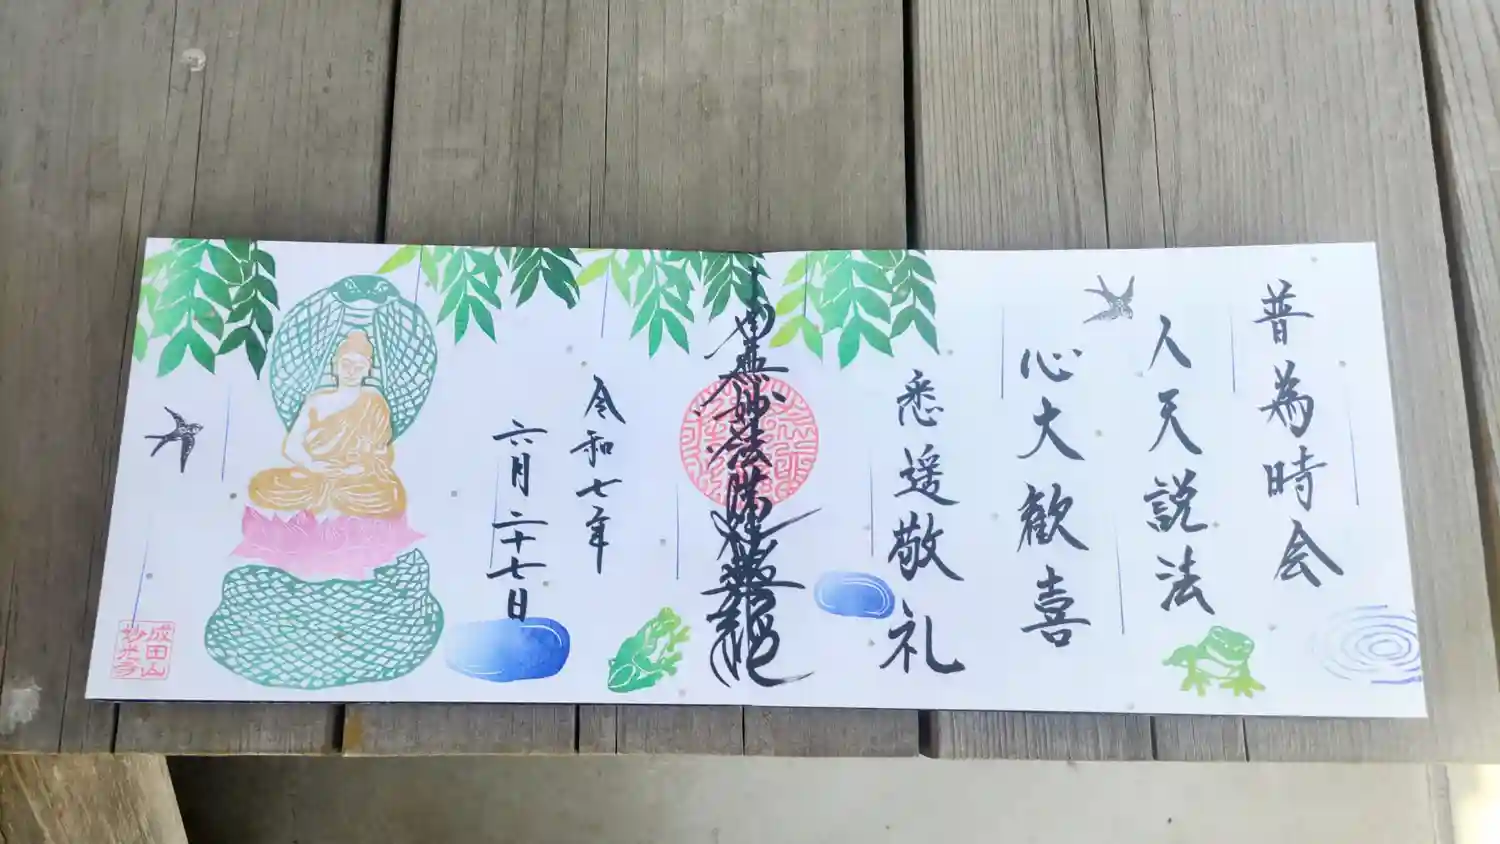 普為時会
人天説法
心大歓喜
悉遥敬礼
南無妙法蓮華経
令和七年
六月二十七日
成田山
妙光寺